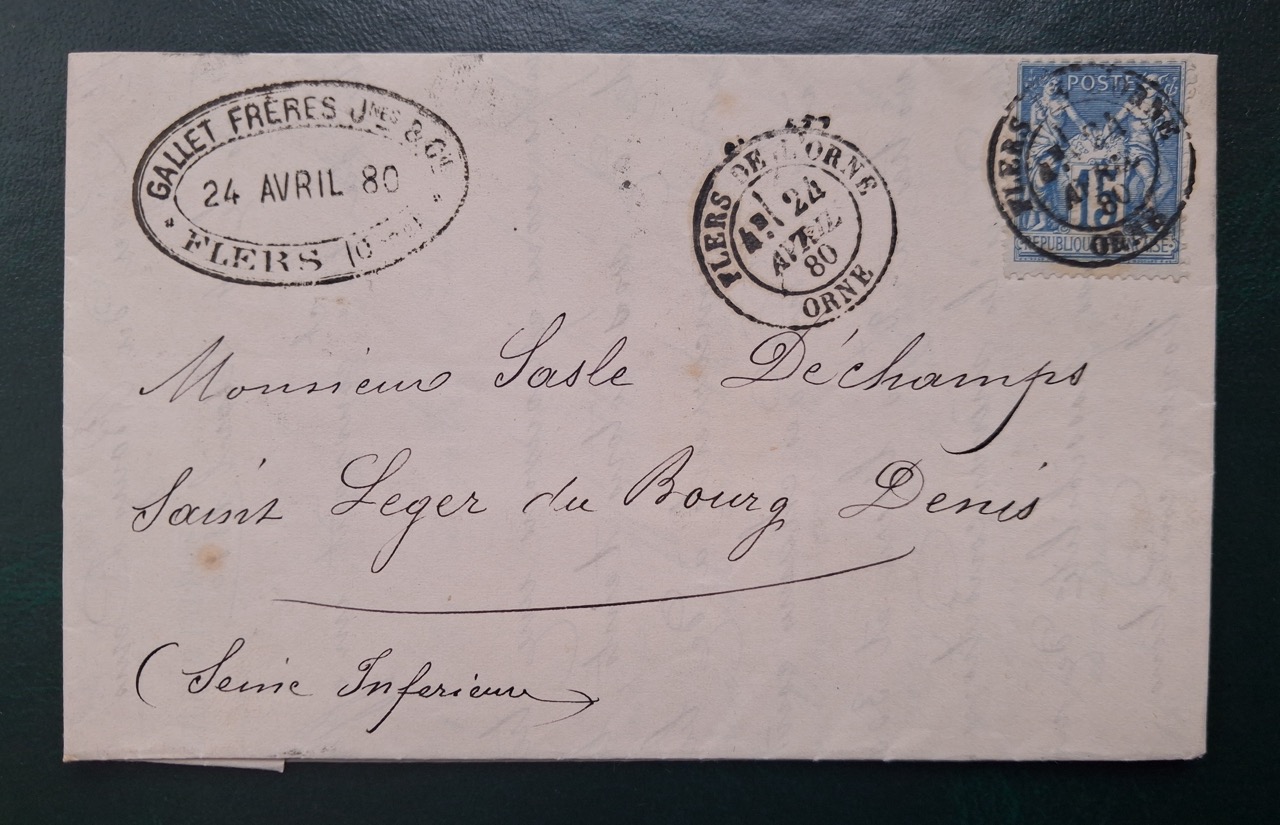 GALLET FRÈRES Jnes & Cie
24 AVRIL 80
FLERS (Orne)
FLERS DE L'ORNE
24
AVRIL
80
ORNE
POSTES
FLERS ORNE
24
AVRIL
80
15
ORNE
REPUBLIQUE FRANÇAISE
Monsieur Sasle Déchamps
Saint Leger du Bourg Denis
(Seine Inferieure)